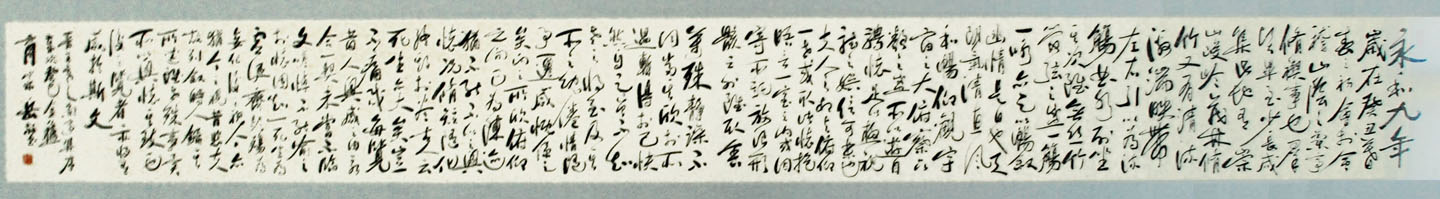 永和九年
歲在癸丑暮
春之初會于會
稽山陰之蘭亭
脩禊事也羣
賢畢至少長咸
集此地有崇
山峻領茂林脩
竹又有清流
激湍暎帶
左右引以為流
觴曲水列坐
其次雖無絲竹
管弦之盛一觴
一詠亦足以暢敘
幽情是日也天
朗氣清惠風
和暢仰觀宇
宙之大俯察品
類之盛所以遊目
騁懷足以極視
聽之娛信可樂也
夫人之相與俯仰
一世或取諸懷抱
悟言一室之內或因
寄所託放浪形
骸之外雖取舍
萬殊靜躁不
同當其欣於所
遇暫得於己快
然自足不知
老之將至及其
所之既惓情隨
事遷感慨係之
矣向之所欣俯仰
之間已為陳迹
猶不能不以之興
懷況脩短隨化
終期於盡古人云
死生亦大矣豈
不痛哉每覽
昔人興感之由若
合一契未嘗不臨
文嗟悼不能喻之
於懷固知一死生為
虛誕齊彭殤為
妄作後之視今亦
猶今之視昔悲夫
故列敘時人錄其
所述雖世殊事異
所以興懷其致一也
後之覽者亦將有
感於斯文